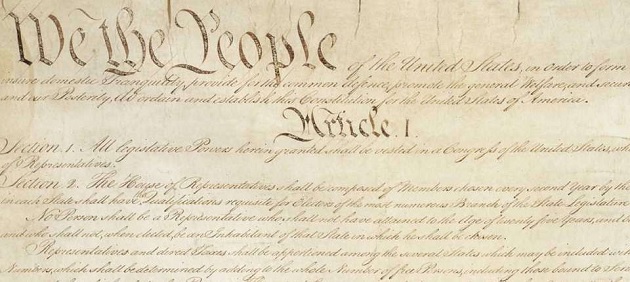 We the People of the United States, in order to form
insure domestic Tranquility, provide for the common defence, promote the general Welfare, and secure
and our Posterity, do ordain and establish this Constitution for the United States of America.
Article. I.
Section. 1. All legislative Powers herein granted shall be vested in a Congress of the United States, wh
of Representatives.
Section. 2. The House of Representatives shall be composed of Members chosen every second Year by the
in each State shall have the Qualifications requisite for Electors of the most numerous Branch of the State Legislature
No Person shall be a Representative who shall not have attained to the Age of twenty five Years, and
and who shall not, when elected, be an Inhabitant of that State in which he shall be chosen.
Representatives and direct Taxes shall be apportioned among the several States which may be included
Numbers, which shall be determined by adding to the whole Number of free Persons, including those bound to